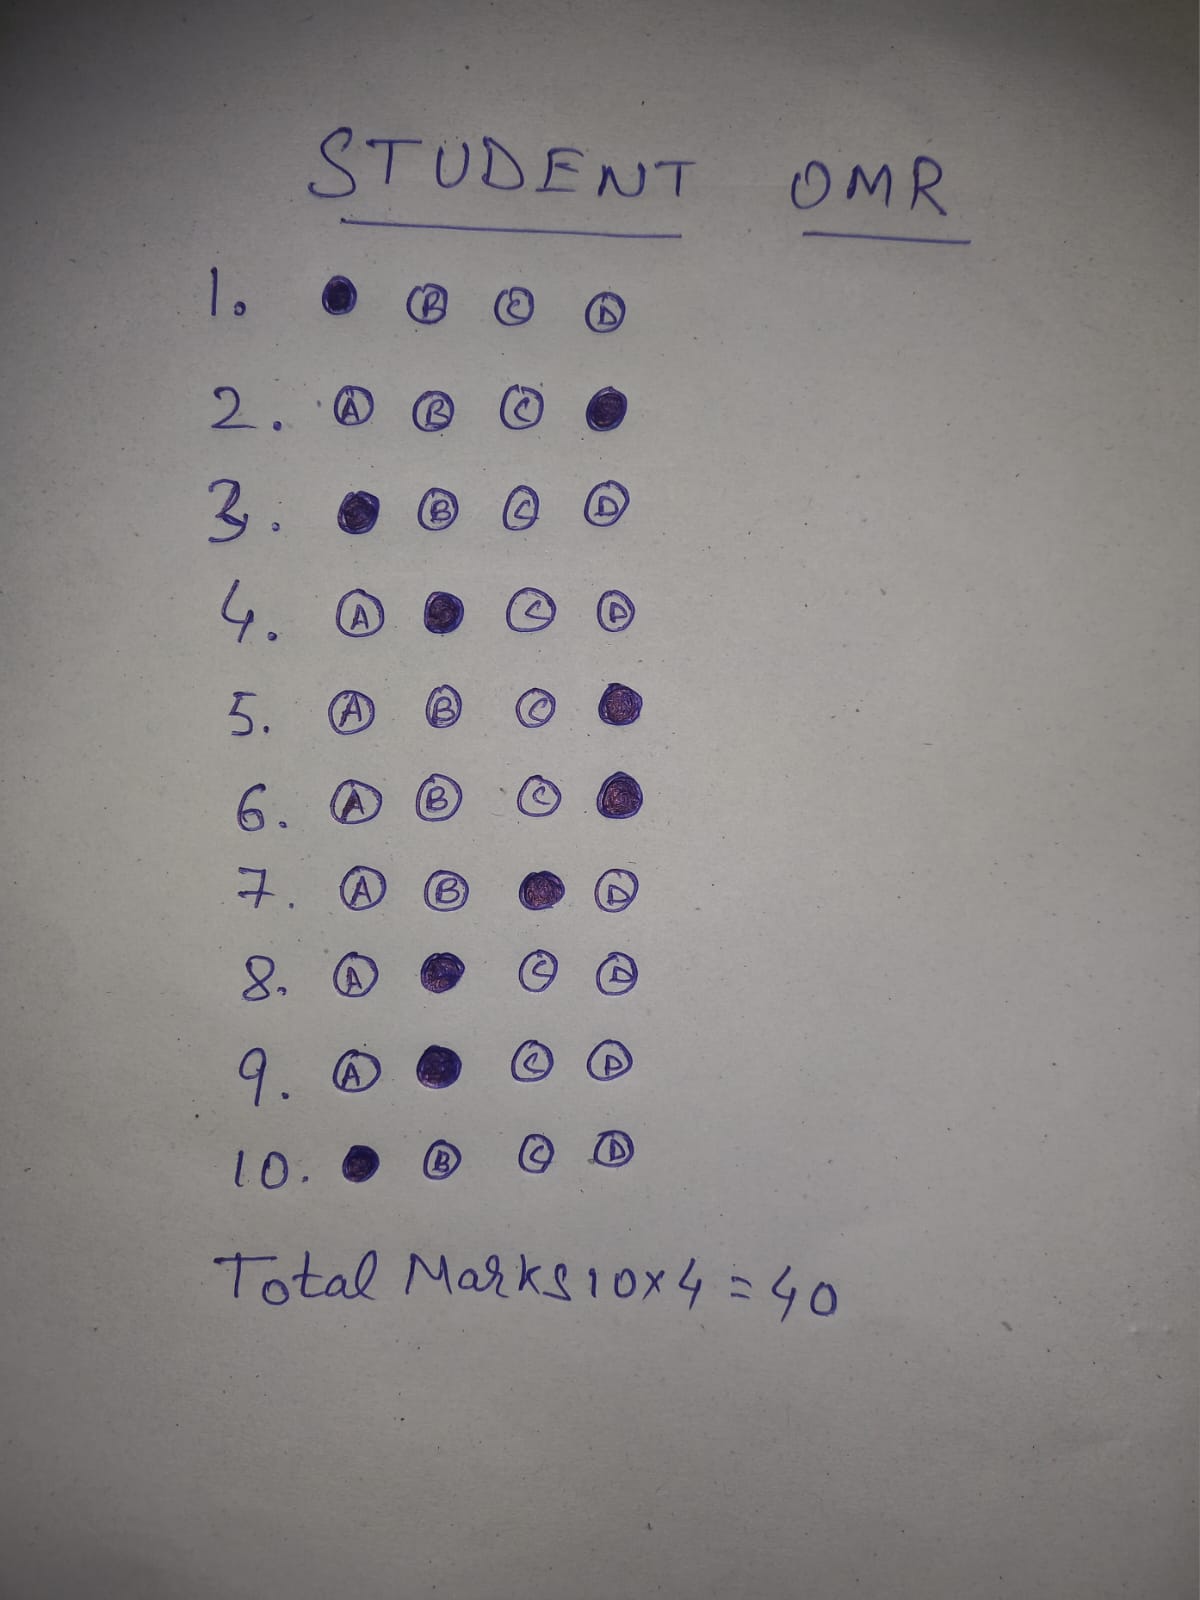 STUDENT OMR
1. ● Ⓑ Ⓒ Ⓓ
2. Ⓐ Ⓑ Ⓒ ●
3. ● Ⓑ Ⓒ Ⓓ
4. Ⓐ ● Ⓒ Ⓓ
5. Ⓐ Ⓑ Ⓒ ●
6. Ⓐ Ⓑ Ⓒ ●
7. Ⓐ Ⓑ ● Ⓓ
8. Ⓐ ● Ⓒ Ⓓ
9. Ⓐ ● Ⓒ Ⓓ
10. ● Ⓑ Ⓒ Ⓓ
Total Marks 10x4=40